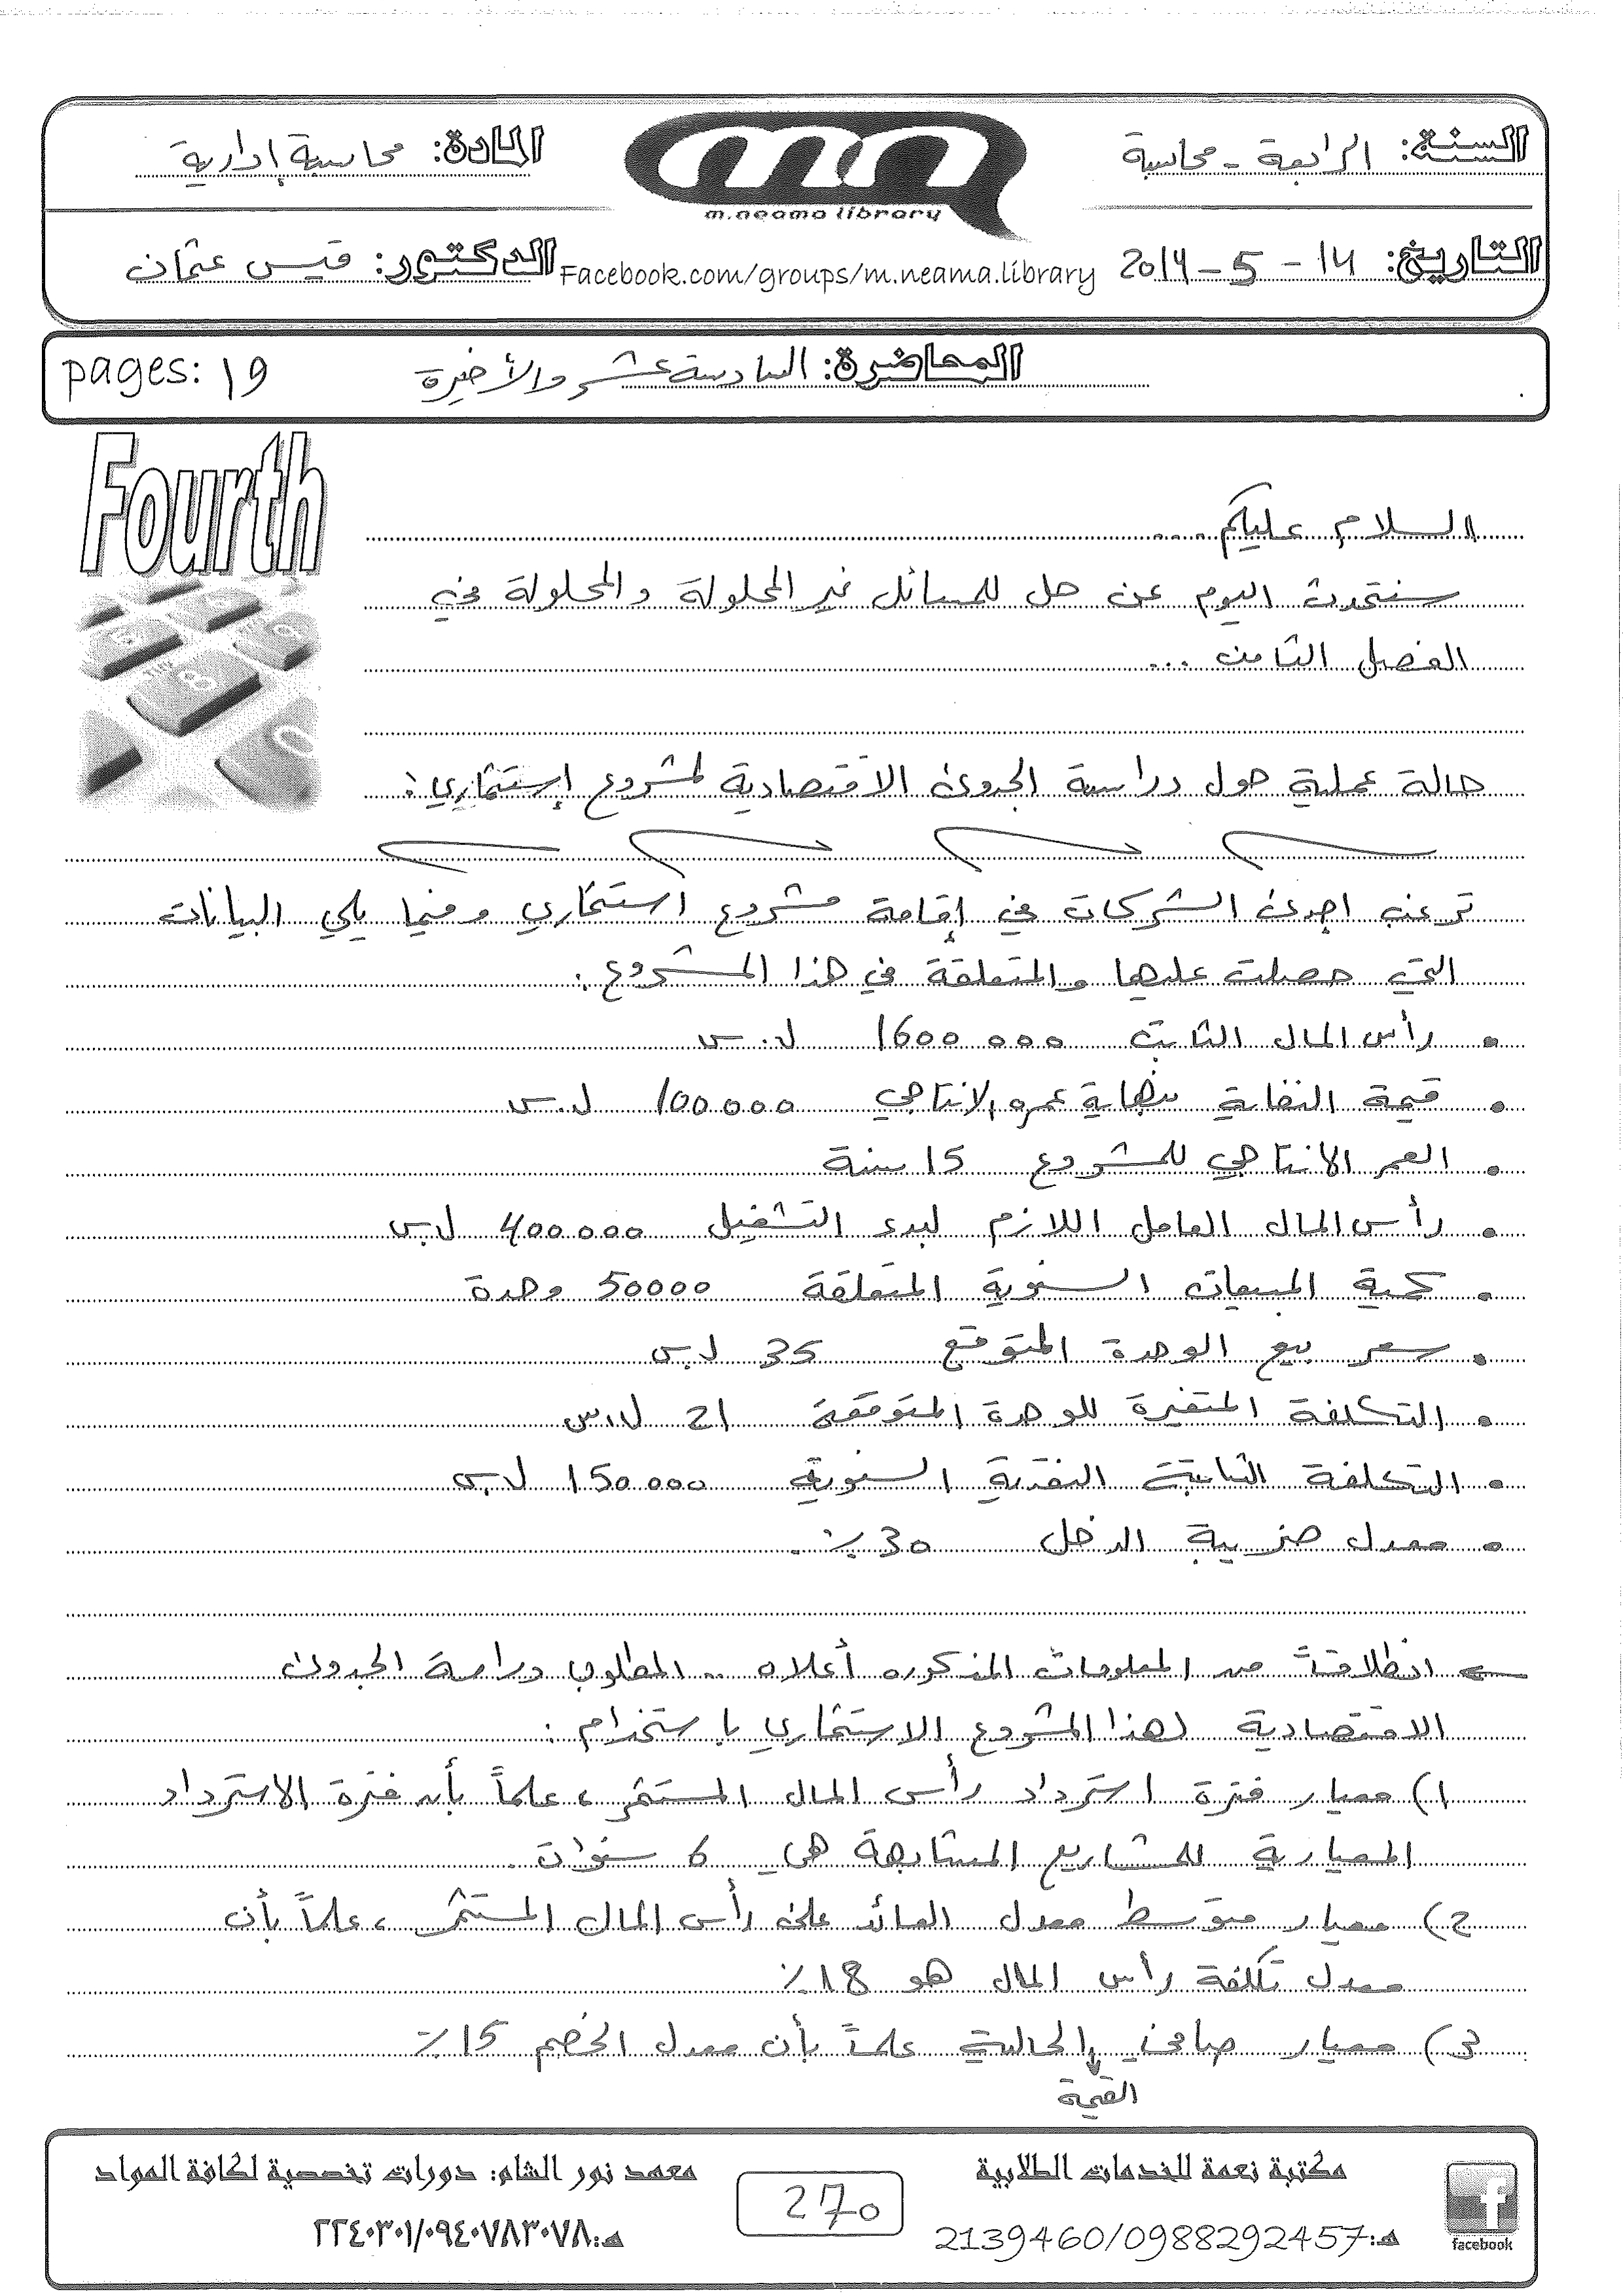 السنة: الرابعة - محاسبة
المادة: محاسبة إدارية
m.neama library
التاريخ: 14 - 5 - 2014
Facebook.com/groups/m.neama.library
الدكتور: قيس عثمان
المحاضرة: السادسة عشر والأخيرة
pages: 19
Fourth
السلام عليكم ....
سنتحدث اليوم عن حل للمسائل غير المحلولة والمحلولة في
الفصل الثامن ...
حالة عملية حول دراسة الجدوى الاقتصادية لمشروع إستثماري:
ترغب احدى الشركات في إقامة مشروع استثماري وفيما يلي البيانات
التي حصلت عليها والمتعلقة في هذا المشروع:
• رأس المال الثابت 1600000 ل.س
• قيمة النفاية بنهاية عمره الانتاجي 100000 ل.س
• العمر الانتاجي للمشروع 15 سنة
• رأس المال العامل اللازم لبدء التشغيل 400000 ل.س
• كمية المبيعات السنوية المتعلقة 50000 وحدة
• سعر بيع الوحدة المتوقع 35 ل.س
• التكلفة المتغيرة للوحدة المتوقعة 21 ل.س
• التكلفة الثابتة النقدية السنوية 150000 ل.س
• معدل ضريبة الدخل 30 %.
انطلاقتاً من المعلومات المذكوره أعلاه .. المطلوب دراسة الجدوى
الاقتصادية لهذا المشروع الاستثماري باستخدام:
1) معيار فترة استرداد رأس المال المستثمر، علماً بأن فترة الاسترداد
المعيارية للمشاريع المشابهة هي 6 سنوات.
2) معيار متوسط معدل العائد على رأس المال المستثمر، علماً بأن
معدل تكلفة رأس المال هو 18%
3) معيار صافي الحالية علماً بأن معدل الخصم 15%
القيمة
مكتبة نعمة للخدمات الطلابية
هـ: 2139460/0988292457
facebook
270
معهد نور الشام: دورات تخصصية لكافة المواد
هـ: ٢٢٤٠٣٠١/٠٩٤٠٧٨٣٠٧٨